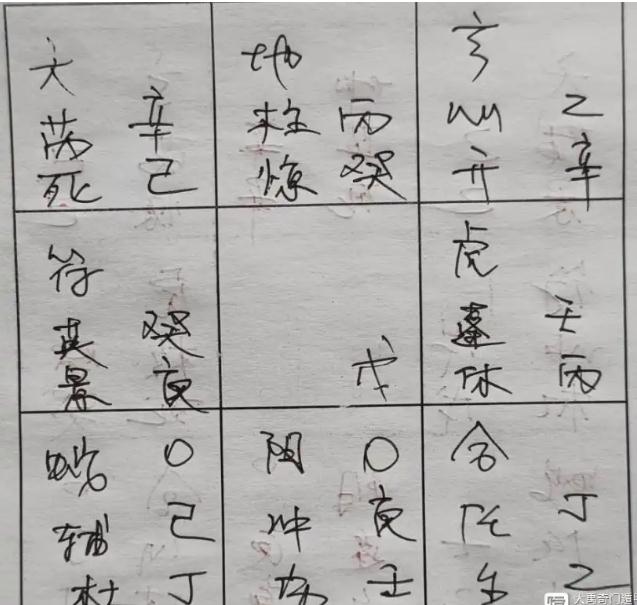 天
芮 辛
死 己
地
柱 丙
惊 癸
玄
心 乙
开 辛
符
英 癸
景 庚
戊
虎
蓬 壬
休 丙
蛇 O
辅 己
杜 丁
阴 O
冲 庚
伤 壬
合
任 丁
生 乙
奇门